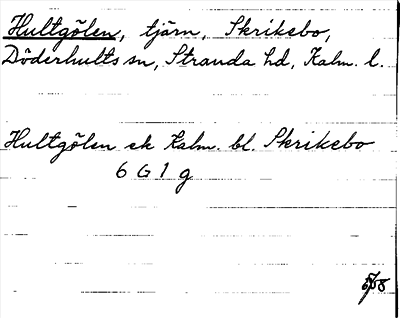 Hultgölen, tjärn, Skrikebo,
Döderhults sn, Stranda hd, Kalm. l.
Hultgölen ek Kalm. bl. Skrikebo
6 G 1 g